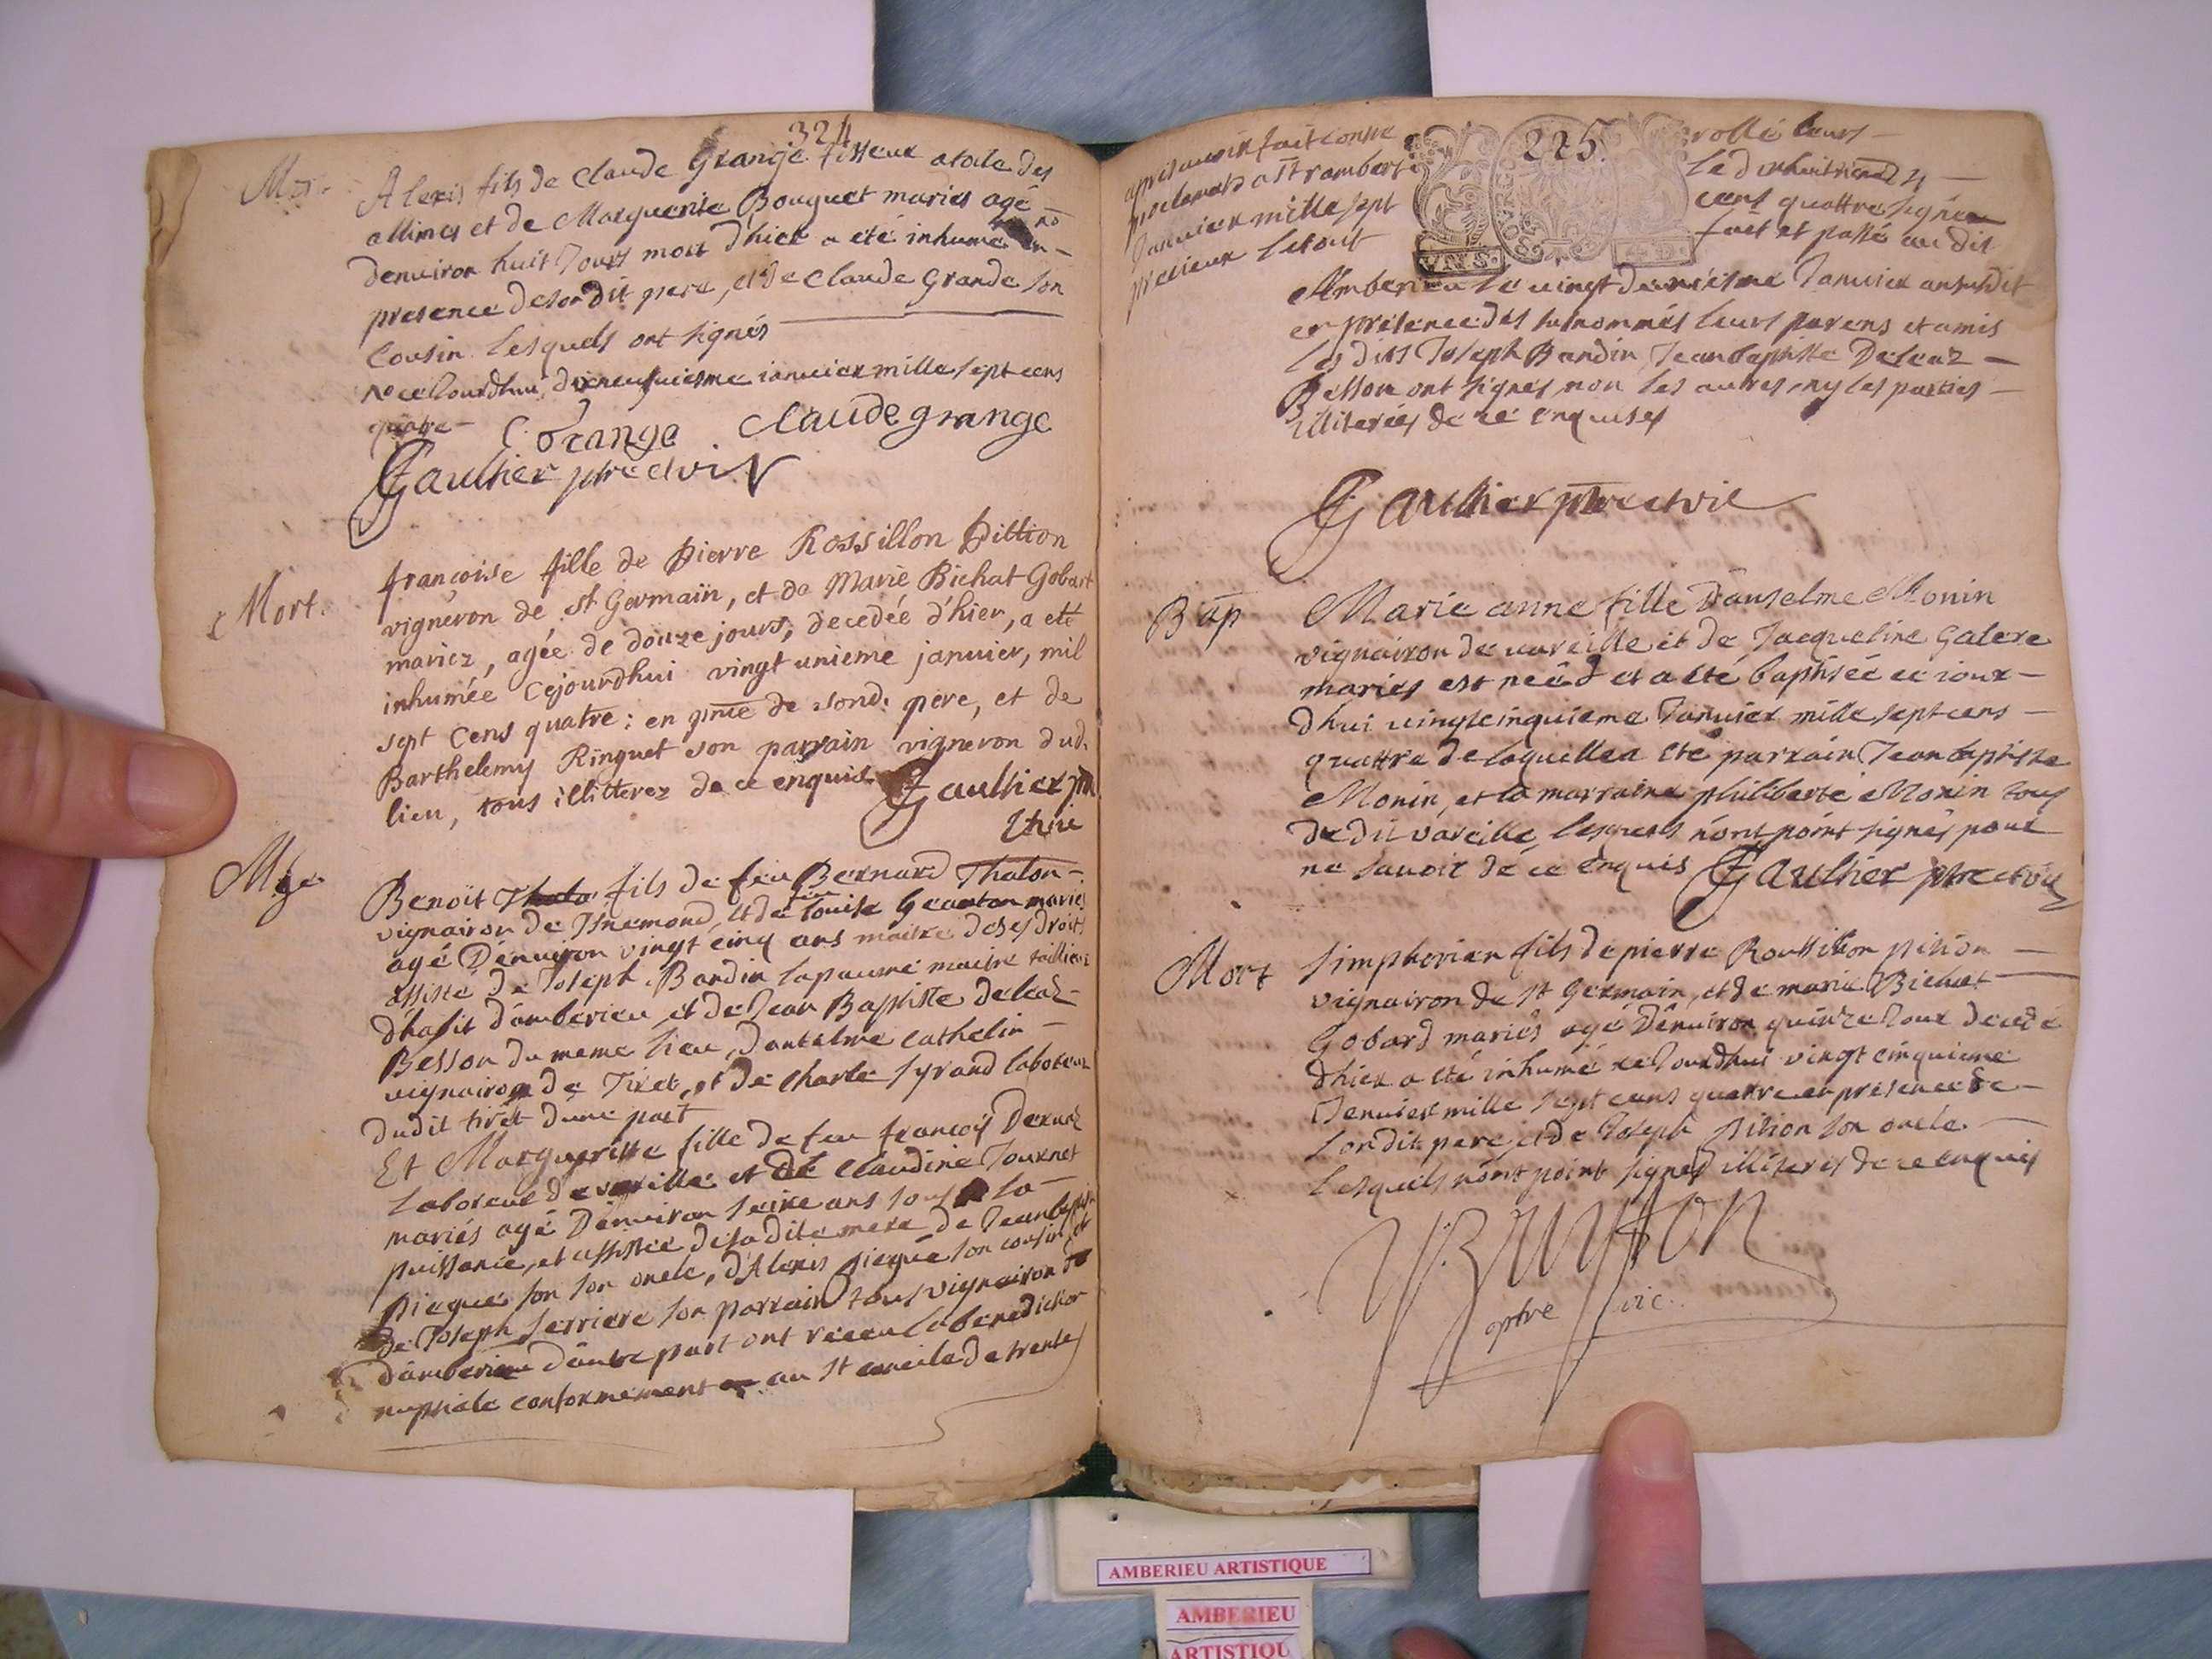 324
Mort
Alexis fils de Claude Grange tisseur a toile des
allimes et de Marguerite Bouguet mariés agé
denviron huit Jours mort d'hier a eté inhumé
presence de son dit pere, et de Claude Grande son
Cousin lesquels ont signés
ce Jourdhui dixneufuiesme ianvier mille sept cens
quatre
C Grange claude grange
Gaulhier ptre et vic
Mort.
françoise fille de Pierre Rossillon Pittion
vigneron de st Germain, et de Marie Bichat Gobart
mariez, agée de douze jours, decedée d'hier, a eté
inhumée Cejourdhui vingt unieme janvier, mil
sept Cens quatre: en pnce de sond. pere, et de
Barthelemy Ringuet son parrain vigneron dud.
lieu, tous illitterez de ce enquis Gaulhier ptre
et vic
Mge
Benoit Thalo fils de feu Bernard Thalon
vignairon de Tnemond, et de Louise mariés
agé Denviron vingt cinq ans maitre de ses droits
assisté de Joseph Bardin lapaume maitre taillieur
d'habit d'amberieu et de Jean Baptiste deleaz
Besson du meme lieu, dantelme cathelin
vignairon de Tiret, et de Charle Syrand laboreur
dudit tiret dune part
Et Margueritte fille de feu françois Deruaz
Laboreur de vareille et de Claudine Tournet
mariés agé Denviron seize ans sous la
puissance, et assistée de sa dite mere de Jean baptiste
pieque son son oncle, d'Alexis pieque son cousin et
de Joseph serriere son parrain tous vignairon
d'amberieu d'autre part ont receu la benediction
nuptiale conformement au st concile de trente
225.
apres auoir fait contre rollé leurs
proclamats a St rambert Le d
Januier mille sept cens quattre signé
precieux le tout fait et passé au dit
Amberieu le vingt deuxiesme Januier an susdit
en presence des susnommés leurs parens et amis
les dits Joseph Bardin Jean baptiste Deleaz
Besson ont signés non les autres, ny les parties
illiterées de ce enquises
Gaulhier ptre et vic
Bap
Marie anne fille D'anselme Monin
vignairon de vareille et de Jacqueline Galere
mariés est neé et a eté baptisée ce iour
dhui vingt cinquieme Januier mille sept cens
quattre de laquelle a eté parrain Jean baptiste
Monin, et la marraine philiberte Monin tous
de dit vareille, lesquels n'ont point signés pour
ne sauoir de ce enquis Gaulhier ptre et vic
Mort
simphorien fils de pierre Roussillon pition
vignairon de st Germain, et de marie Bichat
Gobard mariés agé Denviron quinze Jour decedé
d'hier a eté inhumé ce Jourdhui vingt cinquieme
Januier mille sept cens quatre en presence de
son dit pere, et de Joseph pition son oncle
lesquels n'ont point signés illiterés de ce enquis
ptre vic.
AMBERIEU ARTISTIQUE
AMBERIEU
ARTISTIQU